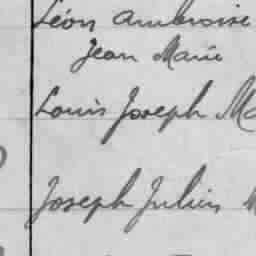 Léon Ambroise
Jean Marie
Louis Joseph Ma
Joseph Julien M